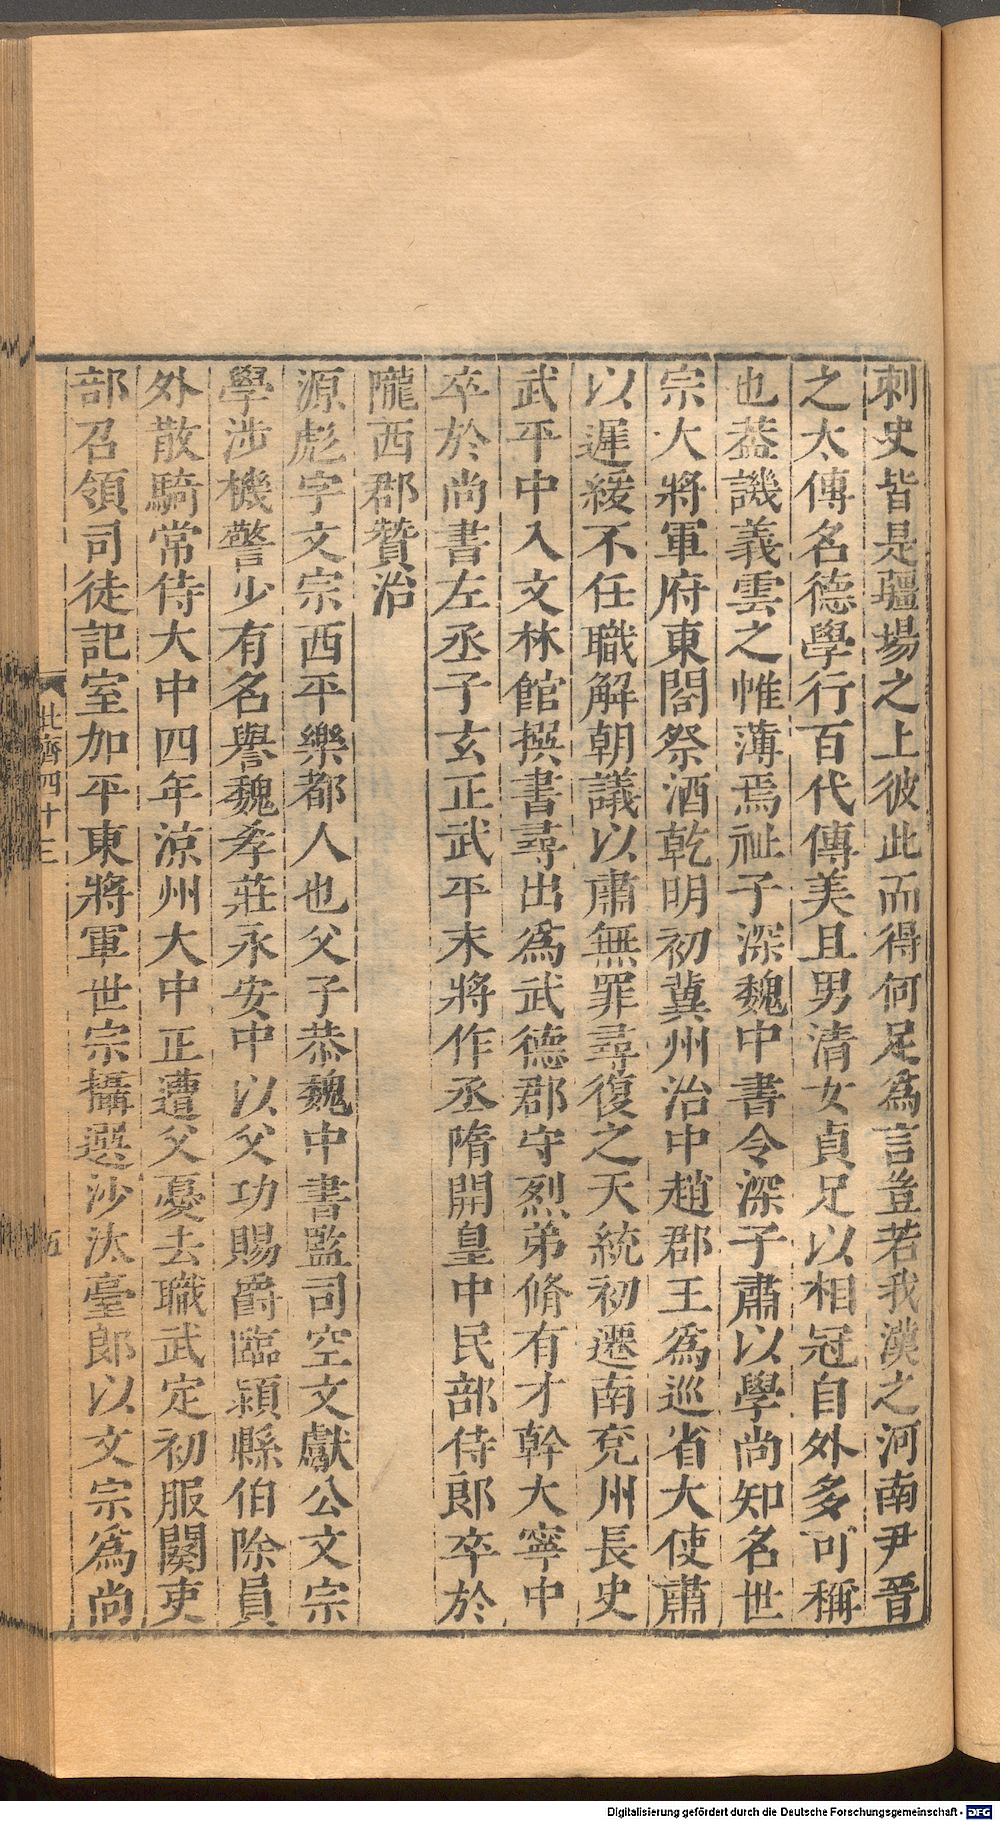 刺史皆是疆埸之上彼此而得何足為言豈若我漢之河南尹晉
之太傅名德學行百代傳美且男清女貞足以相冠自外多可稱
也葢譏義雲之帷薄焉祉子深魏中書令深子肅以學尚知名世
宗大將軍府東閤祭酒乾明初冀州治中趙郡王為巡省大使肅
以遲緩不任職解朝議以肅無罪尋復之天統初遷南兖州長史
武平中入文林館撰書尋出為武德郡守烈弟脩有才幹大寧中
卒於尚書左丞子玄正武平末將作丞隋開皇中民部侍郎卒於
隴西郡贊治
源彪字文宗西平樂都人也父子恭魏中書監司空文獻公文宗
學涉機警少有名譽魏孝莊永安中以父功賜爵臨潁縣伯除員
外散騎常侍大中四年涼州大中正遭父憂去職武定初服闋吏
部召領司徒記室加平東將軍世宗攝選沙汰臺郎以文宗為尚
北齊四十三
五
Digitalisierung gefördert durch die Deutsche Forschungsgemeinschaft - DFG